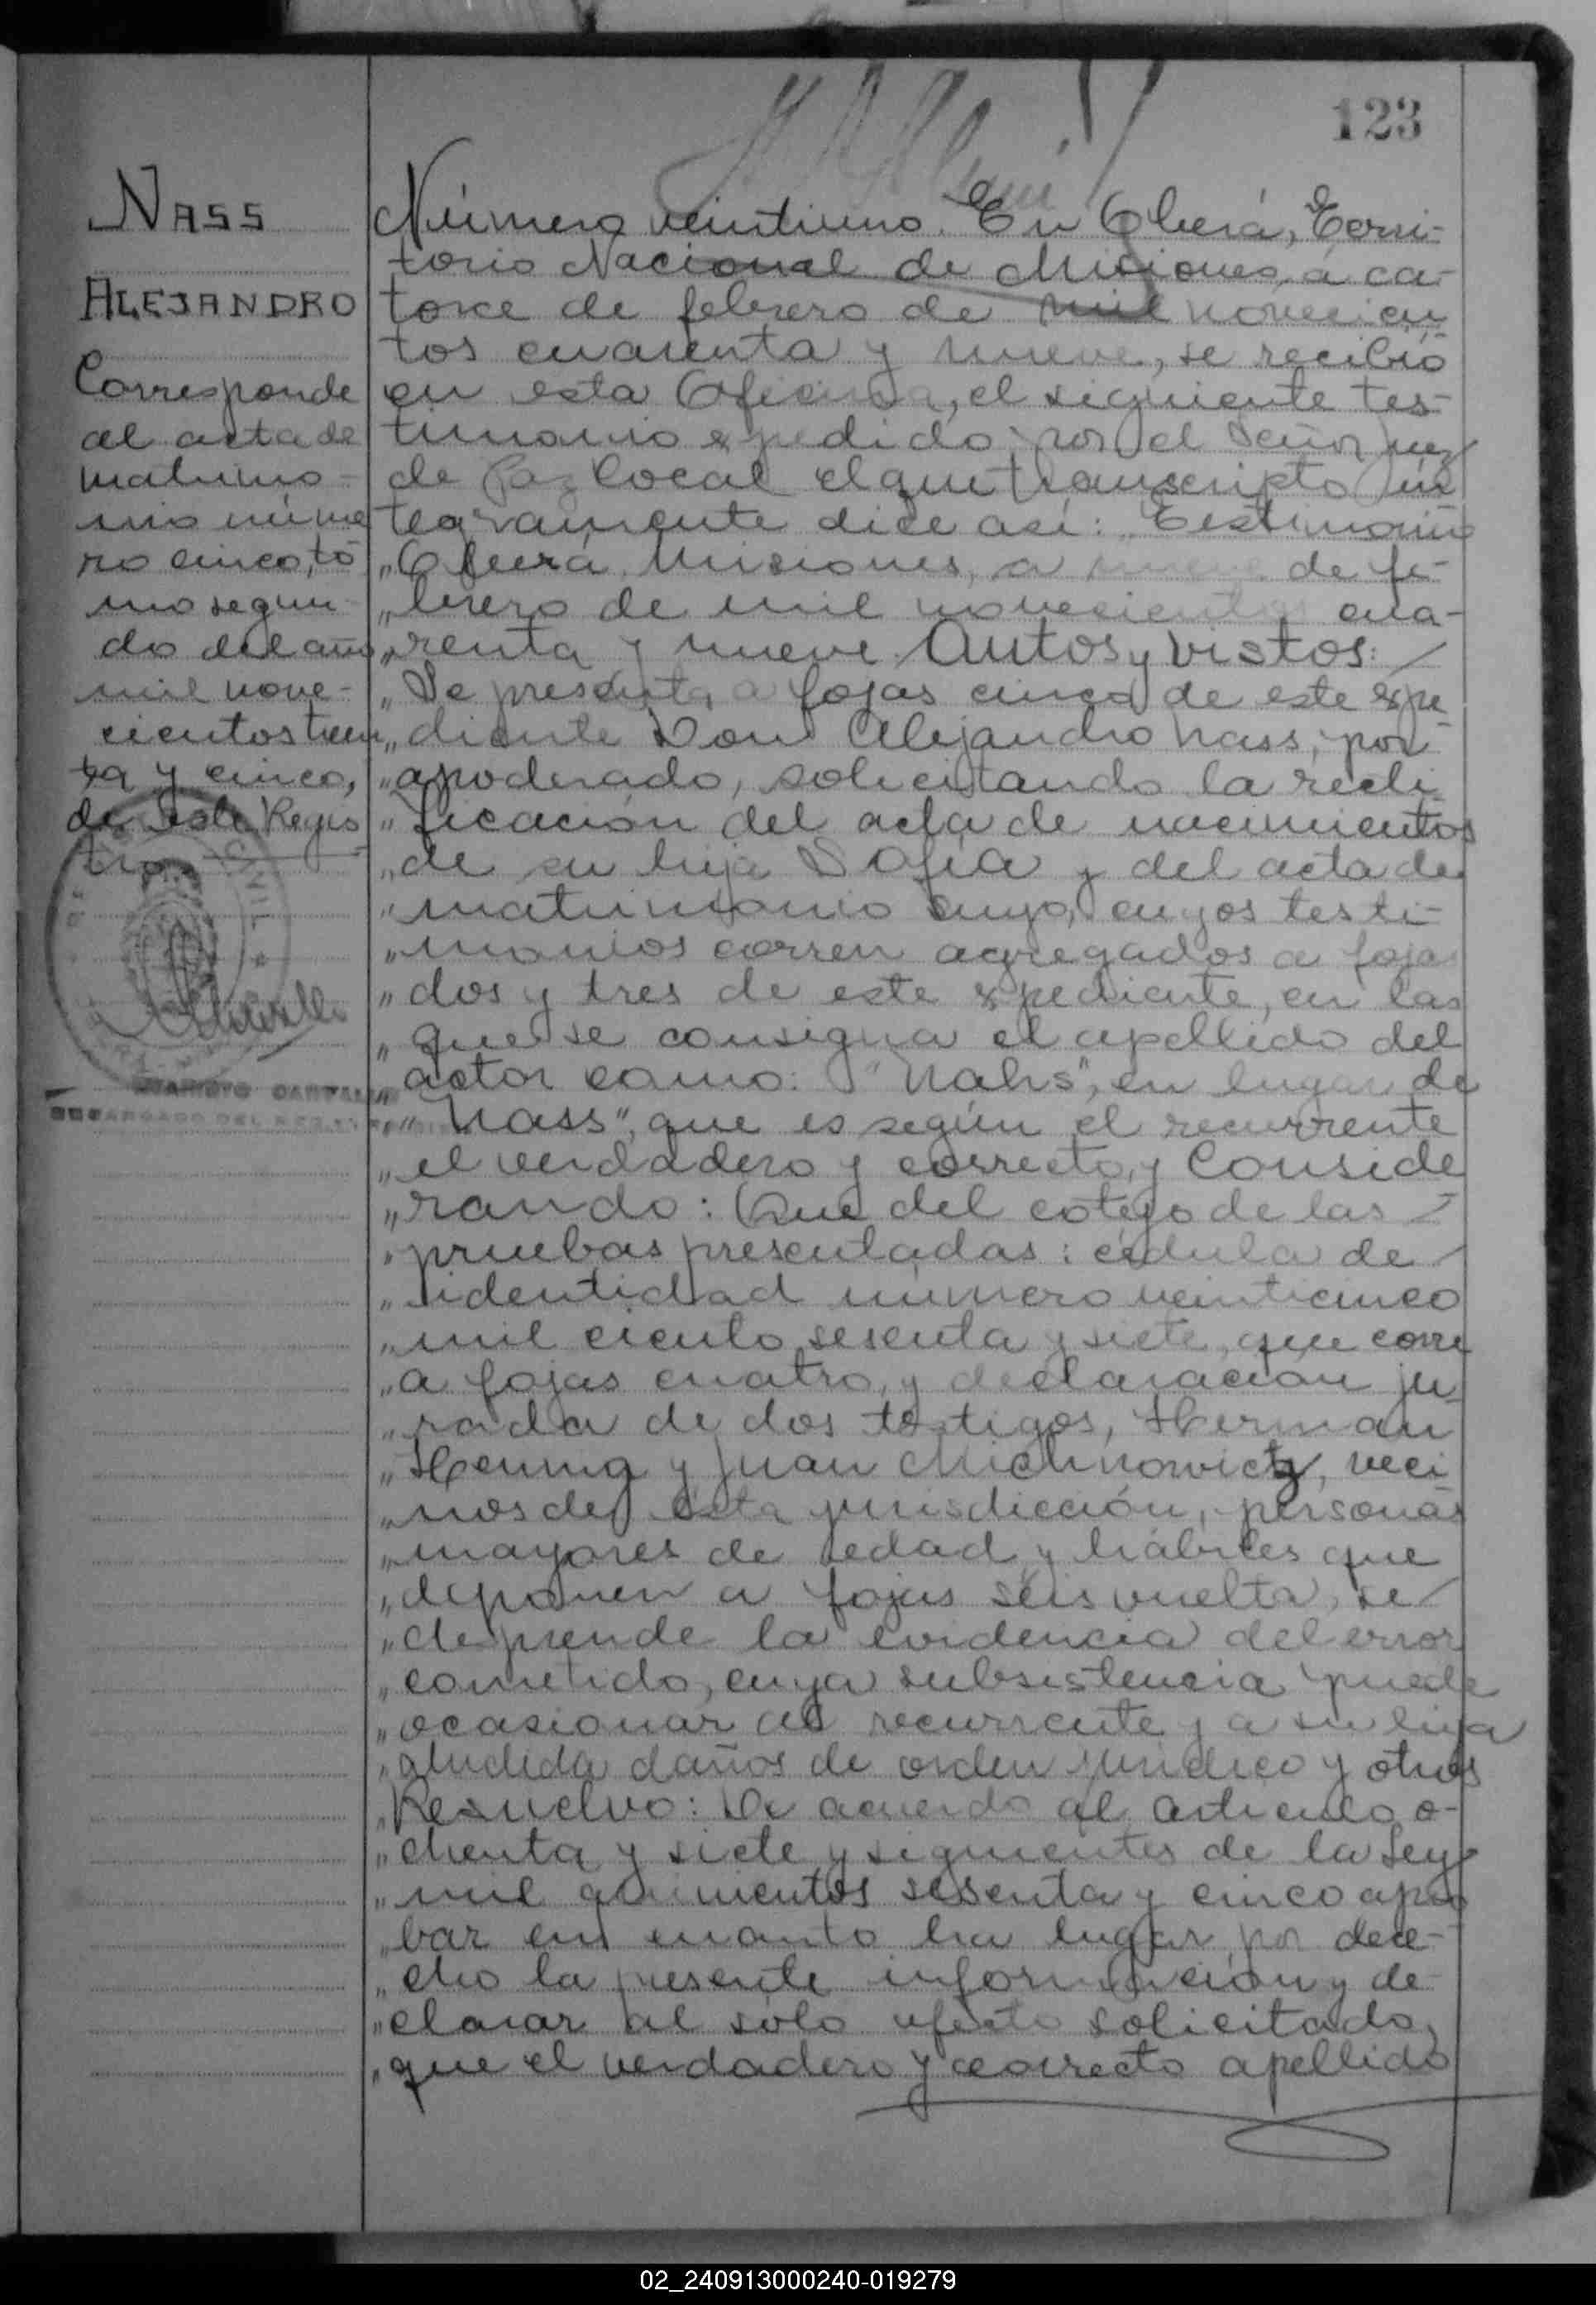 123
NASS
ALEJANDRO
Corresponde
al acta de
matrimo-
nio núme
ro cinco, to
mo segun-
do del año
mil nove-
cientos trein
ta y cinco,
de este Regis
tro.
CIVIL
ENCARGADO DEL
Número veintiuno. En Oberá, Terri-
torio Nacional de Misiones, a ca-
torce de febrero de mil novecien
tos cuarenta y nueve, se recibió
en esta Oficina, el siguiente tes-
timonio expedido por el Señor Juez
de Paz local el que transcripto ín
tegramente dice así: Testimonio
„Oberá, Misiones, a nueve de fe-
„brero de mil novecientos cua-
„renta y nueve. Autos y vistos:
„Se presenta a fojas cinco de este expe
„diente Don Alejandro Nass, por
„apoderado, solicitando la recti
„ficación del acta de nacimientos
„de su hija Sofía y del acta de
„matrimonio suyo, cuyos testi-
„monios corren agregados a fojas
„dos y tres de este expediente, en las
„que se consigna el apellido del
„actor como: "Nahs", en lugar de
„"Nass", que es según el recurrente
„el verdadero y correcto, y Conside
„rando: Que del cotejo de las
„pruebas presentadas: cédula de
„identidad número veinticinco
„mil ciento sesenta y siete, que corre
„a fojas cuatro, y declaración ju
„rada de dos testigos, Herman
„Hennig y Juan Michnowicz, veci
„nos de esta jurisdicción, personas
„mayores de edad y hábiles que
„deponen a fojas seis vuelta, se
„desprende la evidencia del error
„cometido, cuya subsistencia puede
„ocasionar al recurrente y a su hija
„aludida daños de orden jurídico y otros
„Resuelvo: De acuerdo al artículo o-
„chenta y siete y siguientes de la Ley
„mil quinientos sesenta y cinco apro
„bar en cuanto ha lugar por dere-
„cho la presente información y de-
„clarar al sólo efecto solicitado,
„que el verdadero y correcto apellido
02_240913000240-019279